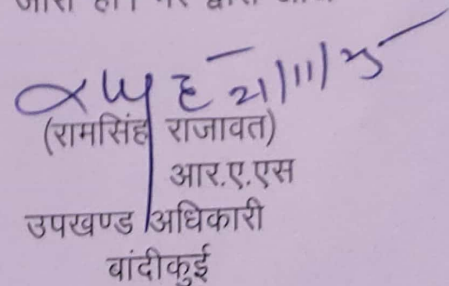 21/11/25
(रामसिंह राजावत)
आर.ए.एस
उपखण्ड अधिकारी
बांदीकुई